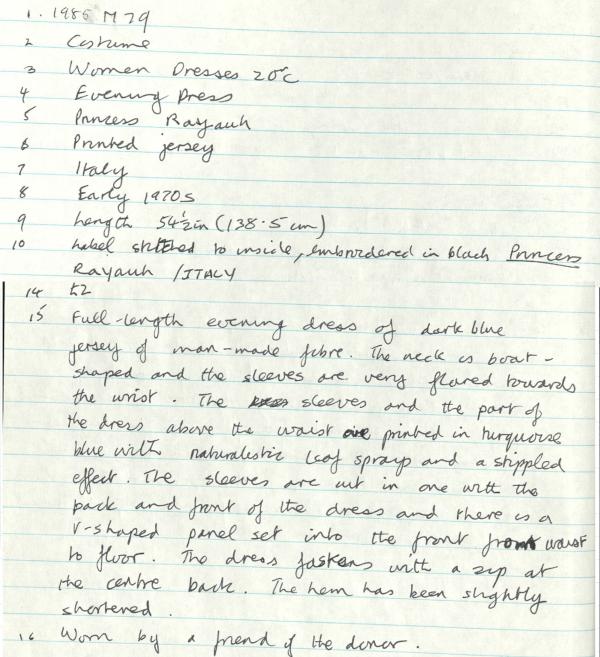 1. 1985 M 79
2 Costume
3 Women Dresses 20°C
4 Evening Dress
5 Princess Rayauh
6 Printed jersey
7 Italy
8 Early 1970s
9 Length 54½in (138.5 cm)
10 Label stitched to inside, embroidered in black Princess
Rayauh /ITALY
14 £2
15 Full-length evening dress of dark blue
jersey of man-made fibre. The neck is boat-
shaped and the sleeves are very flared towards
the wrist. The sleeves and the part of
the dress above the waist are printed in turquoise
blue with naturalistic leaf sprays and a stippled
effect. The sleeves are cut in one with the
back and front of the dress and there is a
V-shaped panel set into the front from waist
to floor. The dress fastens with a zip at
the centre back. The hem has been slightly
shortened.
16 Worn by a friend of the donor.